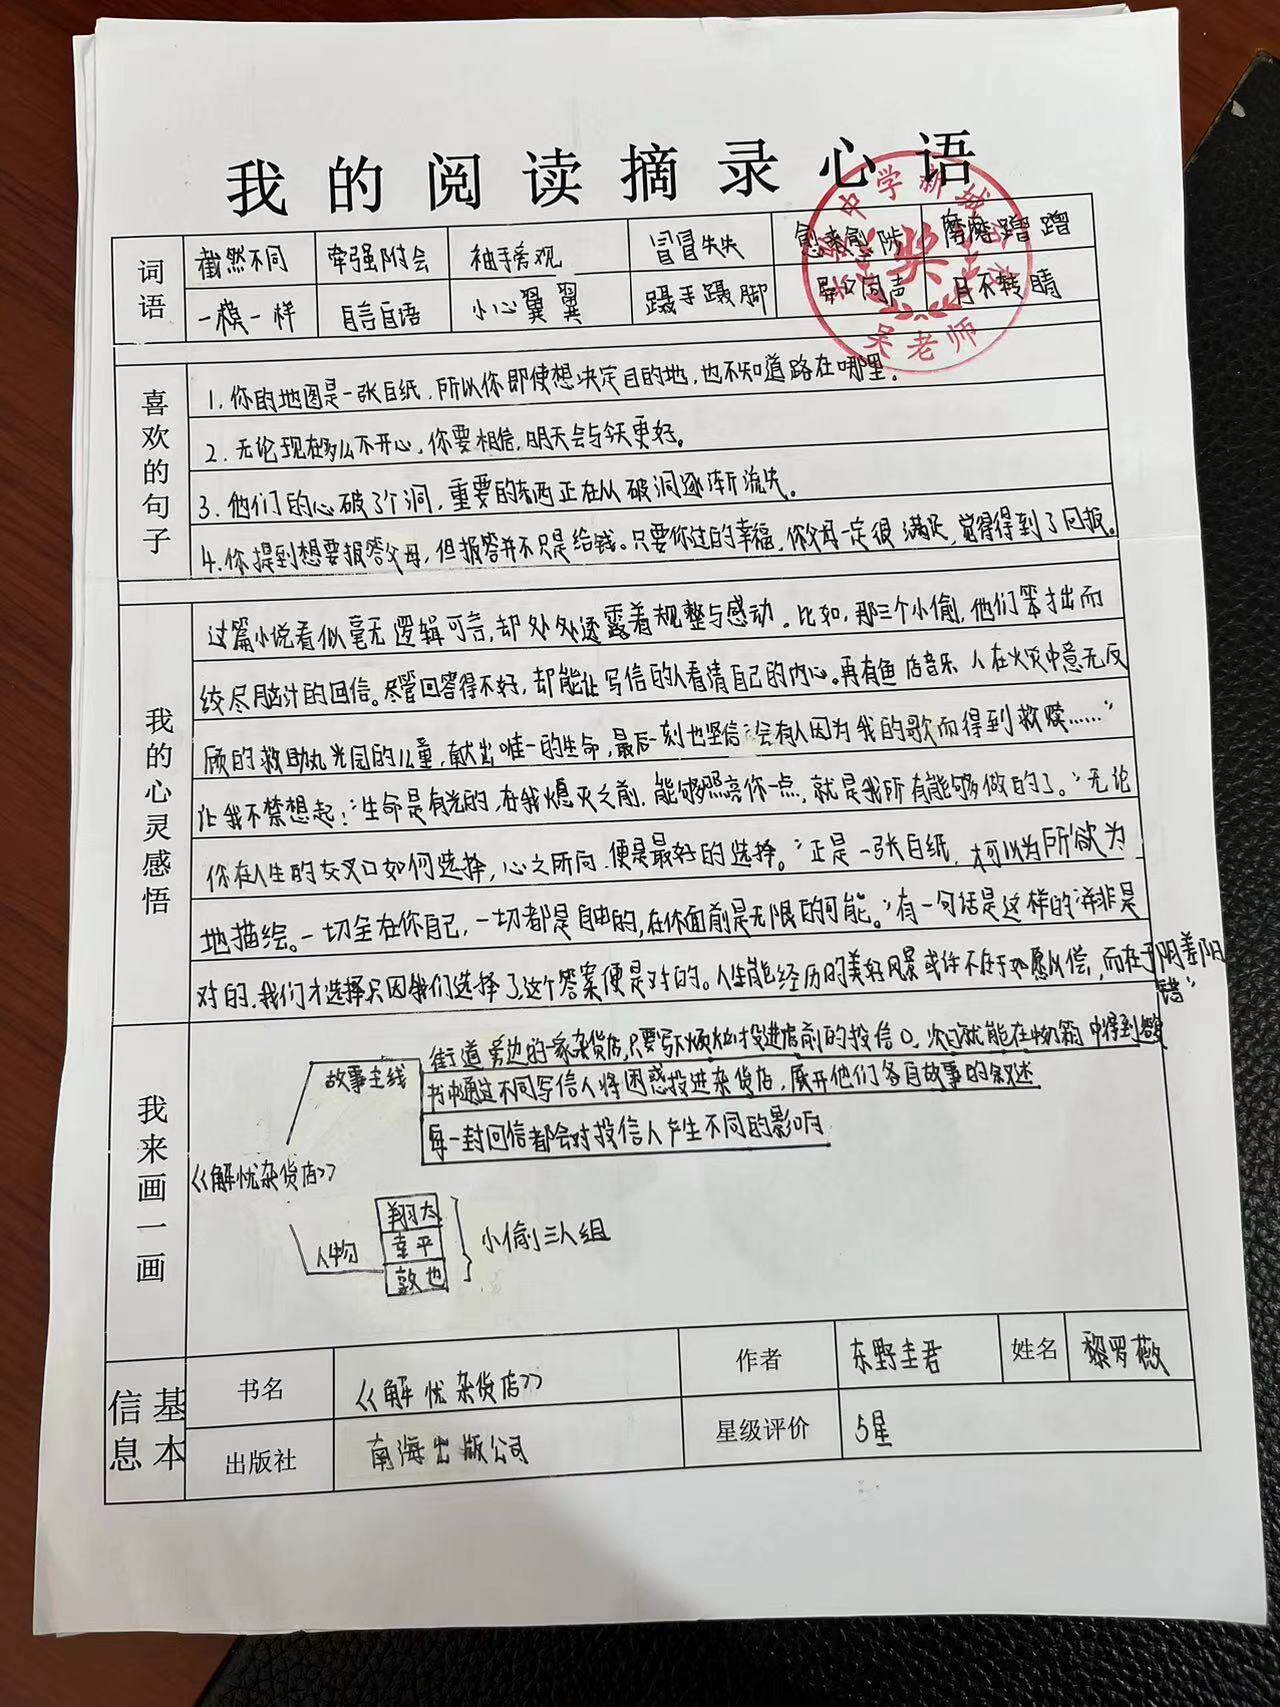 我的阅读摘录心语
词语
截然不同 牵强附会 袖手旁观 冒冒失失 磨磨蹭蹭
一模一样 自言自语 小心翼翼 蹑手蹑脚 异口同声 目不转睛
中学新城
奖
吴老师
喜欢的句子
1.你的地图是一张白纸,所以你即使想决定目的地,也不知道路在哪里。
2.无论现在多么不开心,你要相信,明天会与今天更好。
3.他们的心破了个洞,重要的东西正在从破洞逐渐流失。
4.你提到想要报答父母,但报答并不只是给钱。只要你过的幸福,你父母一定很满足,觉得得到了回报。
我的心灵感悟
这篇小说看似毫无逻辑可言,却处处透露着规整与感动。比如,那三个小偷,他们笨拙而
绞尽脑汁的回信。尽管回答得不好,却能让写信的人看清自己的内心。再有鱼店音乐人在火灾中意无反
顾的救助丸光园的儿童,献出唯一的生命,最后一刻也坚信“会有人因为我的歌而得到救赎……”
让我不禁想起:“生命是有光的,在我熄灭之前,能够照亮你一点,就是我所有能够做的了。”无论
你在人生的交叉口如何选择,心之所向,便是最好的选择。“正是一张白纸,才可以为所欲为
地描绘。一切全在你自己,一切都是自由的,在你面前是无限的可能。”有一句话是这样的“并非是
对的,我们才选择只因我们选择了这个答案便是对的。人生能经历的美好风景或许不在于如愿以偿,而在于阴差阳
错”
我来画一画
故事主线
街道旁边的一家杂货店,只要写下烦恼投进店前的投信口,次日就能在牛奶箱中得到答案
书中通过不同写信人将困惑投进杂货店,展开他们各自故事的叙述
每一封回信都会对投信人产生不同的影响
《解忧杂货店》
人物
翔太
幸平
敦也
小偷三人组
基本信息
书名 《解忧杂货店》 作者 东野圭君 姓名 黎罗薇
出版社 南海出版公司 星级评价 5星